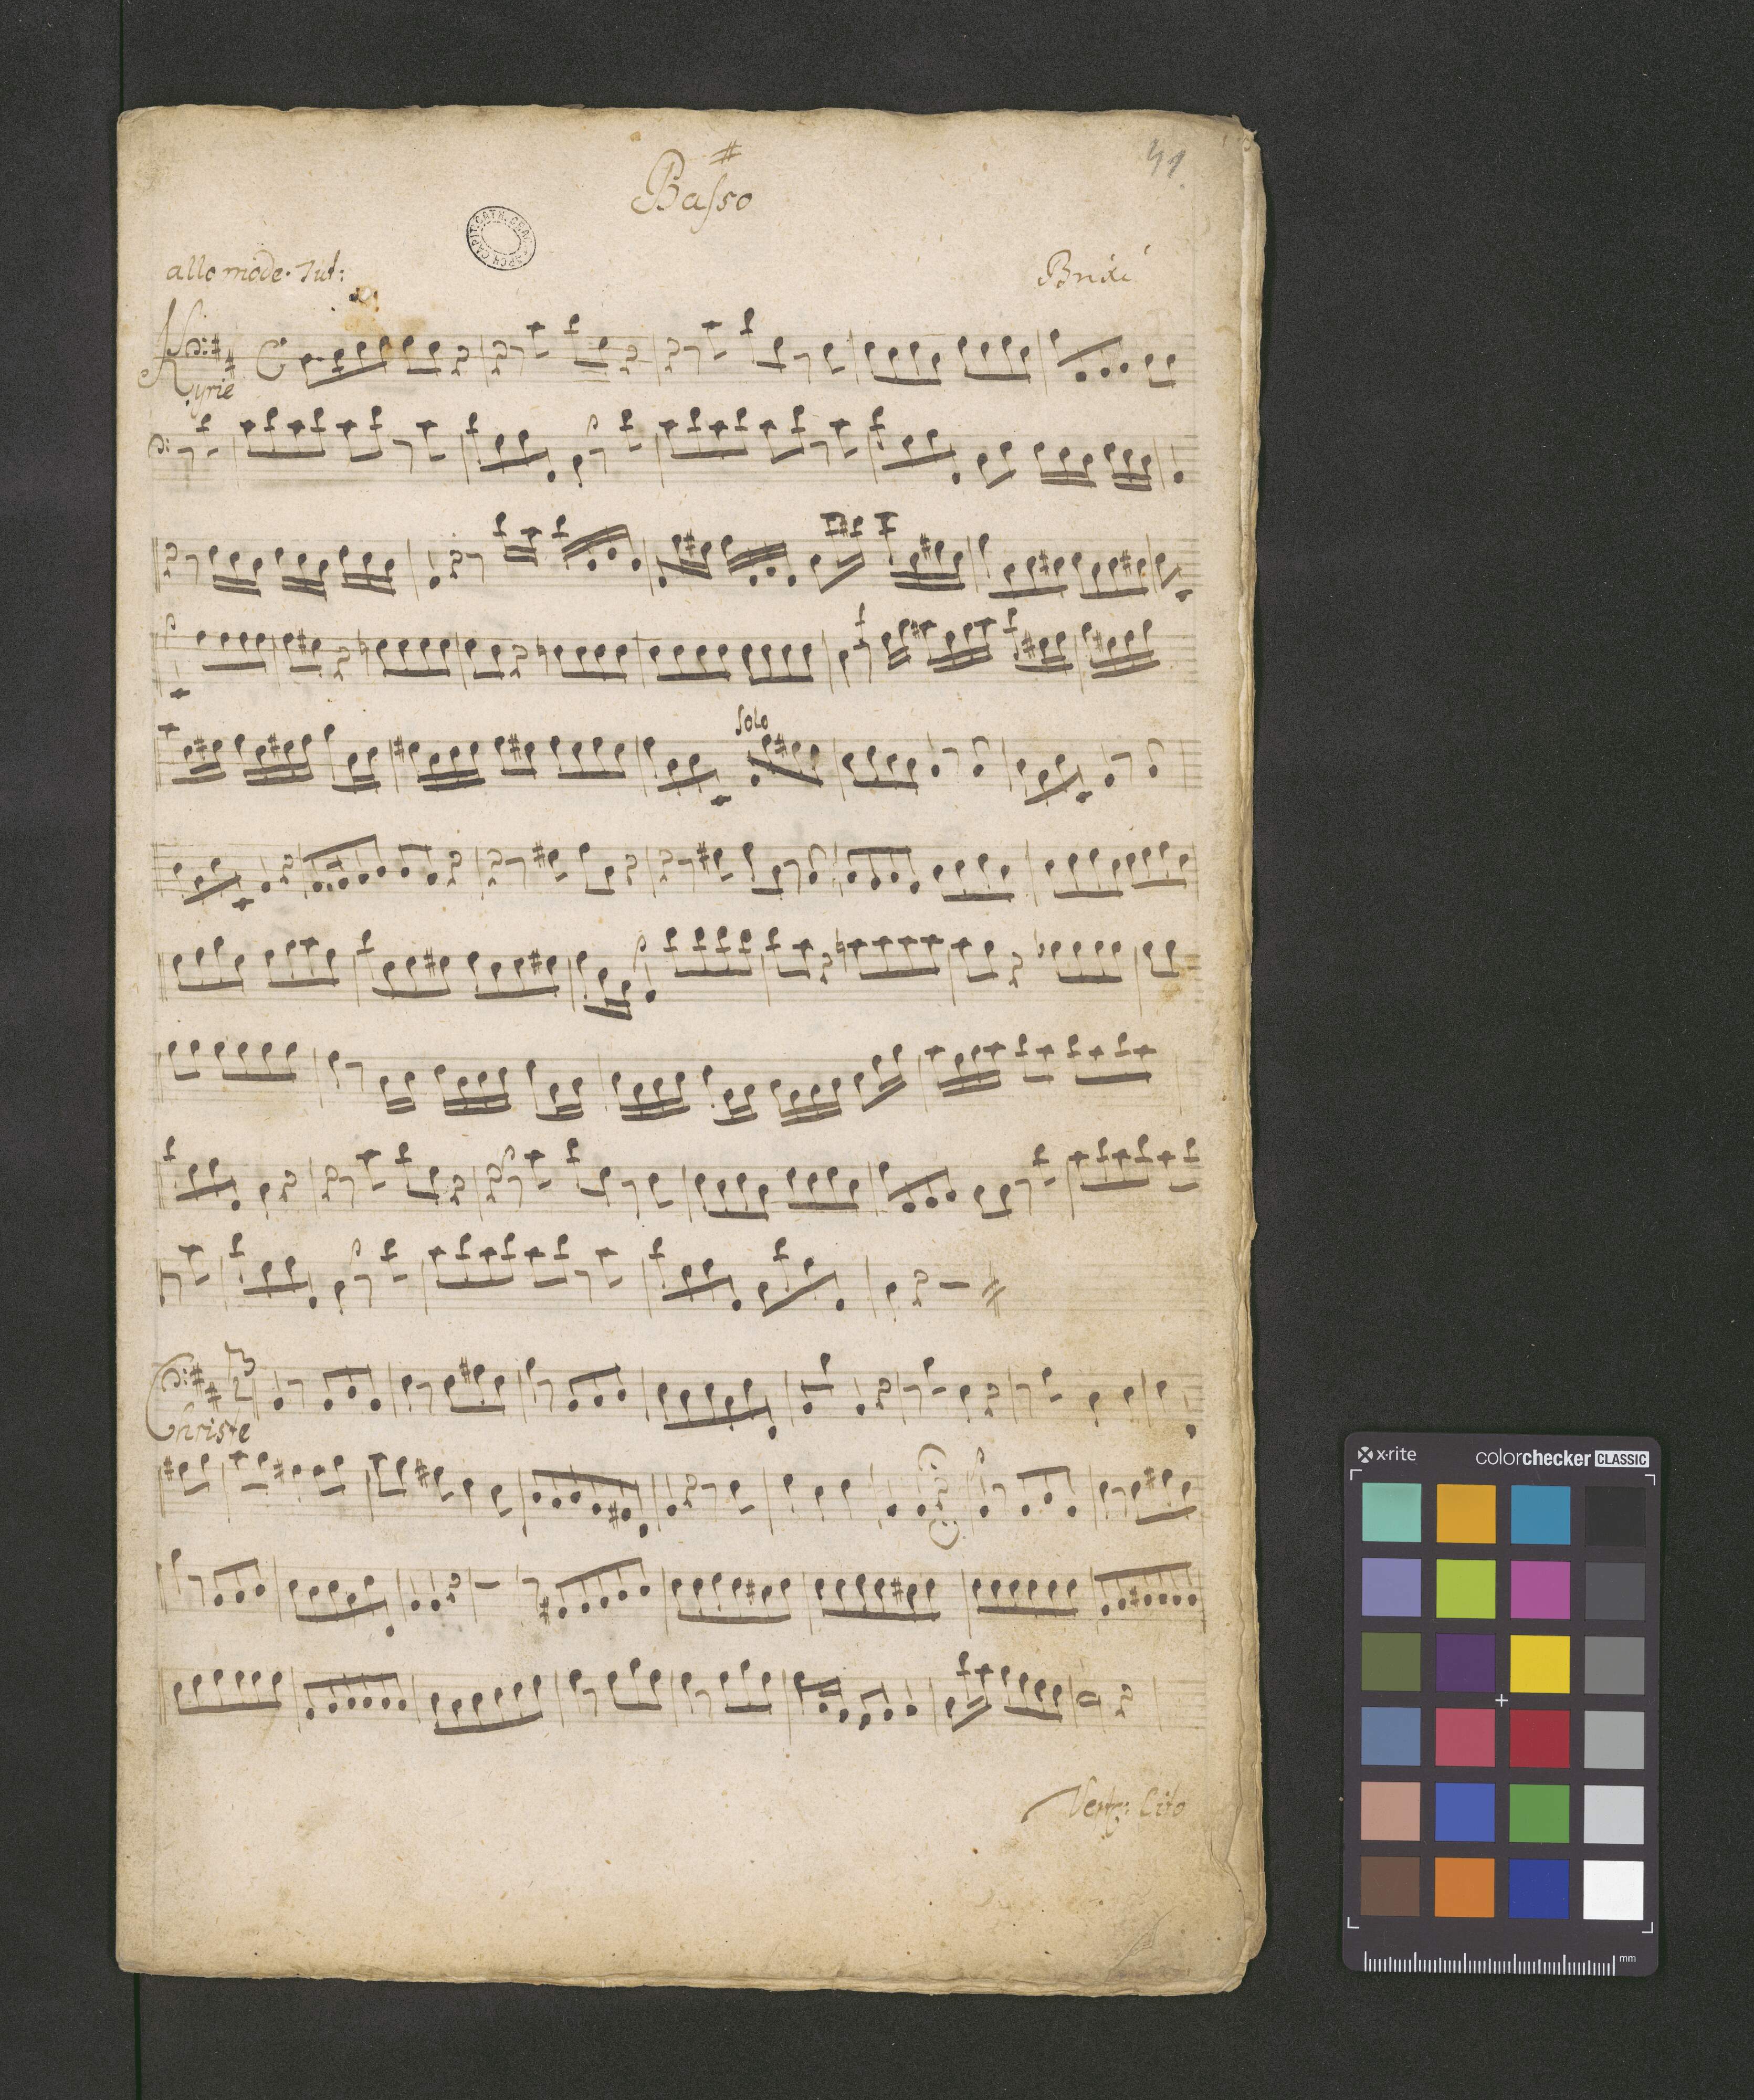 41.
Baſso
ARCH. CAPIT. CATH. CRAC.
allo mode. Tut:
Brixi
Kyrie
Solo
Christe
3
2
Vertz: Cito
x-rite
colorchecker CLASSIC
mm